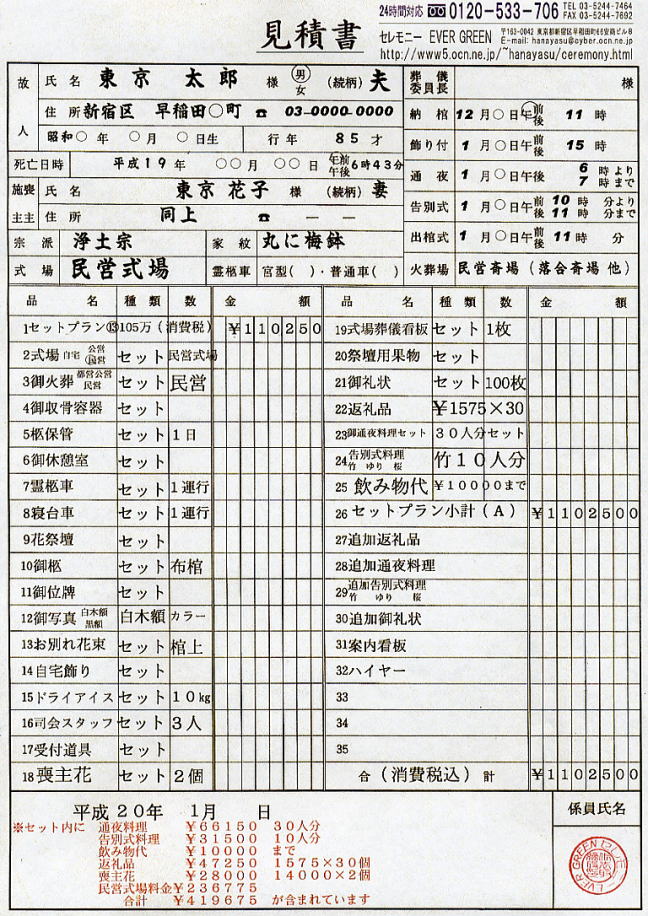 24時間対応 0120-533-706 TEL 03-5244-7464
FAX 03-5244-7692
見積書
セレモニー EVER GREEN 〒162-0042 東京都新宿区早稲田町66安商ビル8
E-mail: hanayasu@cyber.ocn.ne.jp
http://www5.ocn.ne.jp/~hanayasu/ceremony.html
故人 氏名 東京 太郎 様 男 女 (続柄) 夫
住所 新宿区 早稲田〇町 ☎ 03-0000-0000
昭和〇年 〇月 〇日生 行年 85才
死亡日時 平成19年 〇〇月 〇〇日 午前 午後 6時43分
施主 喪主 氏名 東京 花子 様 (続柄) 妻
住所 同上 ☎ — —
宗派 浄土宗 家紋 丸に梅鉢
式場 民営式場 霊柩車 宮型( )・普通車( )
葬儀委員長 様
納棺 12月〇日午前後 11時
飾り付 1月〇日午前後 15時
通夜 1月〇日午後 6時より 7時まで
告別式 1月〇日午前後 10時 分より 11時 分まで
出棺式 1月〇日午前後 11時 分
火葬場 民営斎場(落合斎場 他)
品名 種類 数 金額
1セットプラン⑬ 105万(消費税) ¥110250
2式場 自宅 公営 民営 セット 民営式場
3御火葬 都営公営 民営 セット 民営
4御収骨容器 セット
5柩保管 セット 1日
6御休憩室 セット
7霊柩車 セット 1運行
8寝台車 セット 1運行
9花祭壇 セット
10御柩 セット 布棺
11御位牌 セット
12御写真 白木額 黒額 白木額 カラー
13お別れ花束 セット 棺上
14自宅飾り セット
15ドライアイス セット 10kg
16司会スタッフ セット 3人
17受付道具 セット
18喪主花 セット 2個
品名 種類 数 金額
19式場葬儀看板 セット 1枚
20祭壇用果物 セット
21御礼状 セット 100枚
22返礼品 ¥1575×30
23御通夜料理セット 30人分セット
24告別式料理 竹 ゆり 桜 竹10人分
25 飲み物代 ¥10000まで
26 セットプラン小計(A) ¥1102500
27追加返礼品
28追加通夜料理
29追加告別式料理 竹 ゆり 桜
30追加御礼状
31案内看板
32ハイヤー
33
34
35
合(消費税込)計 ¥1102500
平成20年 1月 日
※セット内に 通夜料理 ¥66150 30人分
告別式料理 ¥31500 10人分
飲み物代 ¥10000 まで
返礼品 ¥47250 1575×30個
喪主花 ¥28000 14000×2個
民営式場料金¥236775
合計 ¥419675 が含まれています
係員氏名
EVER GREEN セレモニー